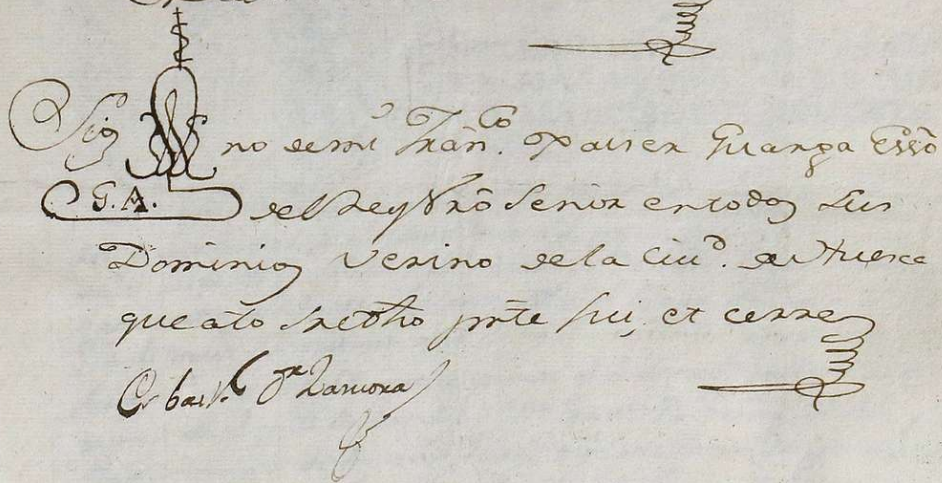 Sig no de mi Fran.co Xavier Guarga Essno
G. A. del Rey Nro Señor en todos sus
Dominios Vezino de la Ciud. de Huesca
que a lo Sredho prnte fui, et cerre
Zamora